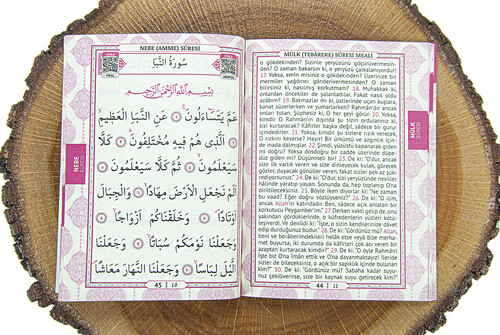 NEBE (AMME) SÛRESİ
سُورَةُ النَّبَأِ
بِسْمِ اللّٰهِ الرَّحْمٰنِ الرَّحِيمِ
عَمَّ يَتَسَاءَلُونَ ١ عَنِ النَّبَإِ الْعَظِيمِ
٢ اَلَّذِى هُمْ فِيهِ مُخْتَلِفُونَ ٣ كَلَّا
سَيَعْلَمُونَ ٤ ثُمَّ كَلَّا سَيَعْلَمُونَ ٥
اَلَمْ نَجْعَلِ الْاَرْضَ مِهَادًا ٦ وَالْجِبَالَ
اَوْتَادًا ٧ وَخَلَقْنَاكُمْ اَزْوَاجًا ٨
وَجَعَلْنَا نَوْمَكُمْ سُبَاتًا ٩ وَجَعَلْنَا
الَّيْلَ لِبَاسًا ١٠ وَجَعَلْنَا النَّهَارَ مَعَاشًا
NEBE
45 10
MÜLK (TEBÂREKE) SÛRESİ MEALİ
o gökdekinden? Sizinle yeryüzünü göçünüvermesin-
den? O zaman bakarsın ki, o yeryüzü çalkalanıyordur!
17. Yoksa, emin misiniz o gökdekinden? Üzerinize bir
mermiler yağdırıcı gönderivermesinden? O zaman
bilirsiniz ki, nasılmış korkutmam? 18. Muhakkak ki,
onlardan öncekiler de yalanladılar. Fakat nasıl oldu
azâbım? 19. Bakmazlar mı ki, üstlerinde uçan kuşlara,
kanat süzerlerken ve yumarlarken? Rahmân'dır ancak
onları tutan. Şüphesiz ki, O her şeyi görür. 20. Yoksa,
kimdir O Rahmân'ın dışında şu sizin ordularınız ki,
sizi kurtaracak? Kâfirler başka değil, sâdece bir gurur
içindedirler. 21. Yoksa, kimdir şu sizlere rızık verecek,
O rızkını keserse? Hayır! Bir ürküntü ve azgınlık için-
de inada dalmışlar. 22. Şimdi, yüzüstü kapanarak giden
mi doğru? Yoksa dosdoğru bir cadde üzerinde düpe-
düz giden mi? Düşünmeli bir! 23. De ki: "O'dur, ancak
size ilk varlık veren ve size dinleyecek kulak, görecek
gözler, duyacak gönüller veren, fakat sizler pek az şük-
rediyorsunuz." 24. De ki: "O'dur, sizi yeryüzünde nesil
hâlinde yaratıp yayan. Sonunda da, hep toplanıp O'na
dirilileceksiniz. 25. Böyle iken diyorlar ki: "Ne zaman
bu vaad? Eğer doğru söylüyseniz?" 26. De ki: "O ilim,
ancak Allah'ın katındadır. Ben, sâdece açık anlatan bir
korkutucu Peygamber'im." 27. Derken vakti gelip de, onu
yakından gördüklerinde, o küfredenlerin yüzleri kötü-
leşiverdi. Ve denildi ki: "İşte, o sizin kendilerinizce dâvet
edip durduğunuz budur." 28. De ki: "Gördünüz mü? Allah,
beni ve berâberimdekileri helâk etse veyâ bize merha-
met buyursa, iki durumda da kâfirleri çok acı veren bir
azaptan kurtaracak kimdir?" 29. De ki: "O öyle Rahmân!
İşte biz O'na îmân ettik ve O'na dayanmaktayız! İleride
sizler de bileceksiniz, o açık bir sapıklık içinde bulunan
kim?" 30. De ki: "Gördünüz mü? Sabaha kadar suyu-
nuz çekiliverirse, size bir kaynak suyu getirecek kim?"
MÜLK
44 11